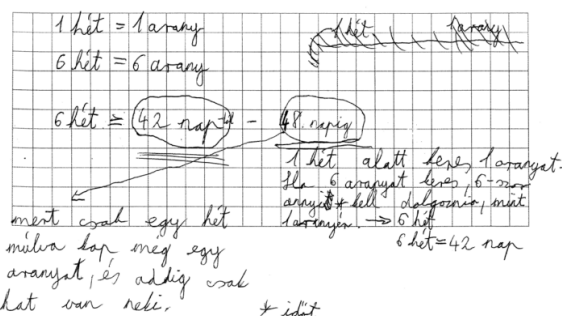 1 hét = 1 arany
6 hét = 6 arany
6 hét = 42 nap - 48. napig
1 hét alatt keres 1 aranyat.
Ha 6 aranyat keres, 6-szor
annyit * kell dolgoznia, mint
1 aranyén. → 6 hét
6 hét = 42 nap
mert csak egy hét
múlva kap meg egy
aranyat, és addig csak
hat van neki.
* időt